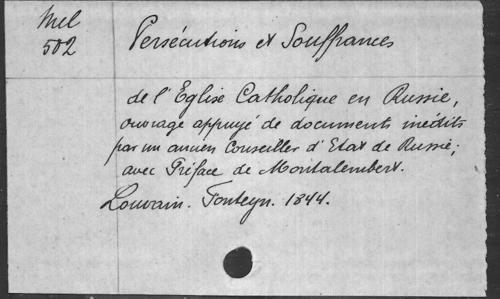 Mel
502
Persécutions et Souffrances
de l'Eglise Catholique en Russie,
ouvrage appuyé de documents inédits
par un ancien Conseiller d'Etat de Russie;
avec Préface de Montalembert.
Louvain. Fonteyn. 1844.